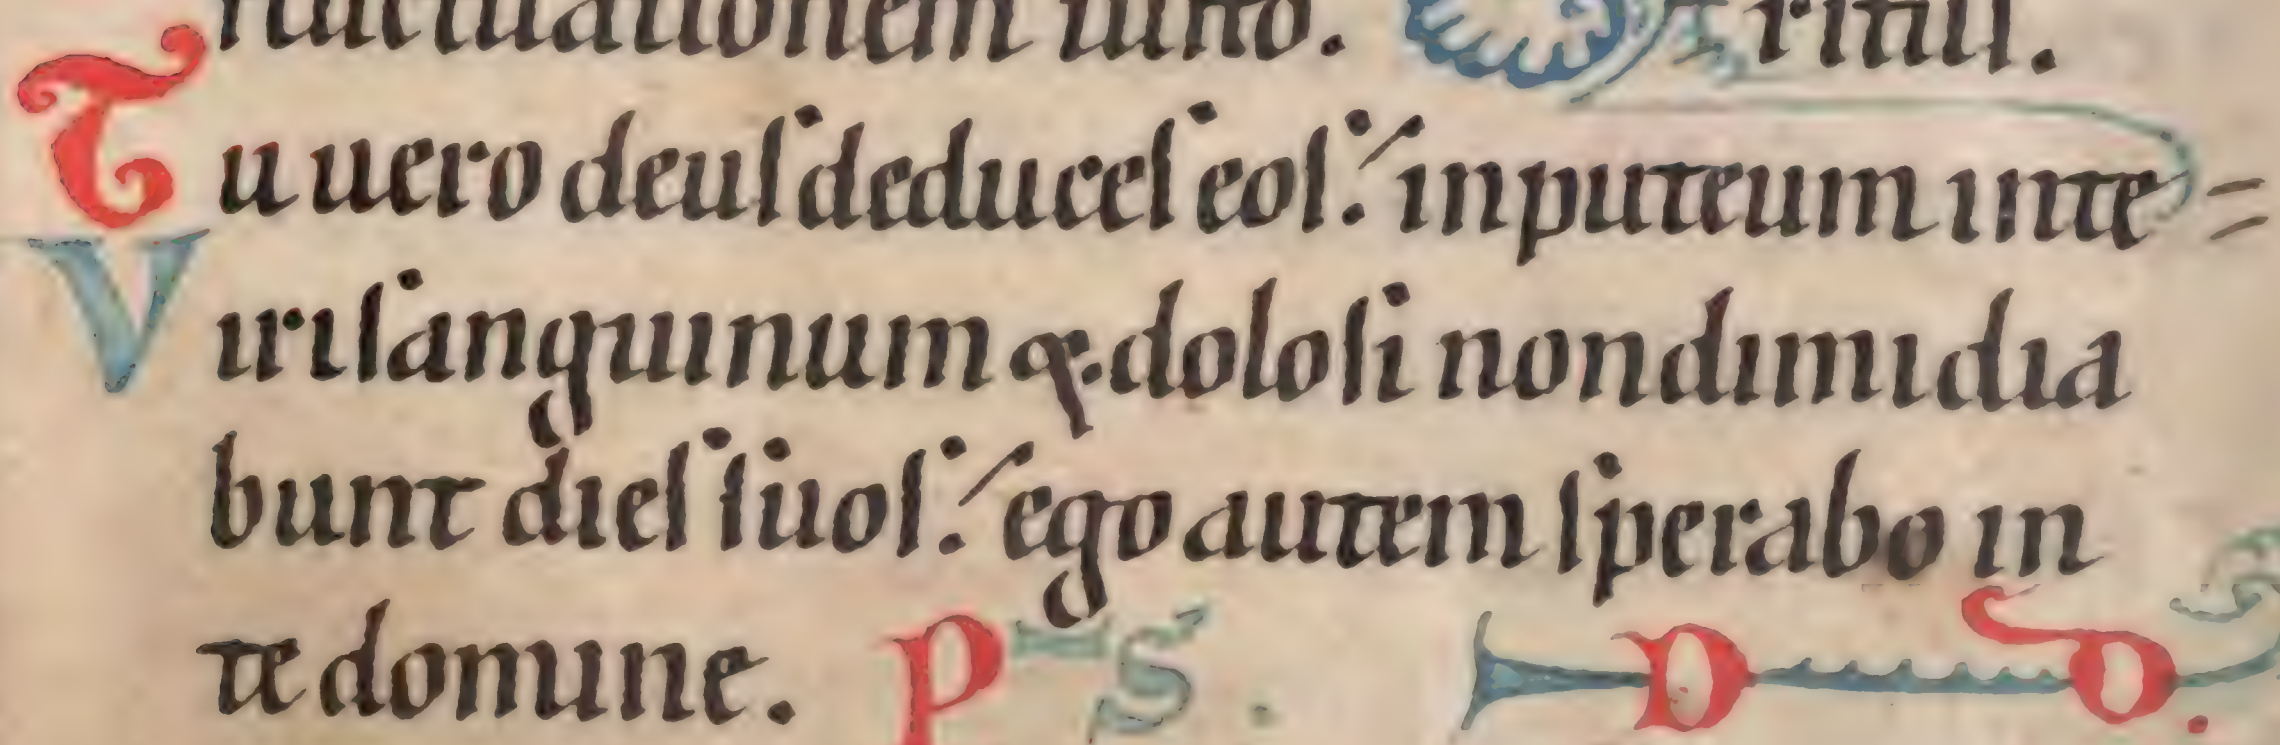 fluctuationem iuſto. rituſ.
Tu uero deuſ deduceſ eoſ: in puteum inte=
Viri ſanguinum & doloſi non dimidia
bunt dieſ ſuoſ: ego autem ſperabo in
te domine. PS. DD.